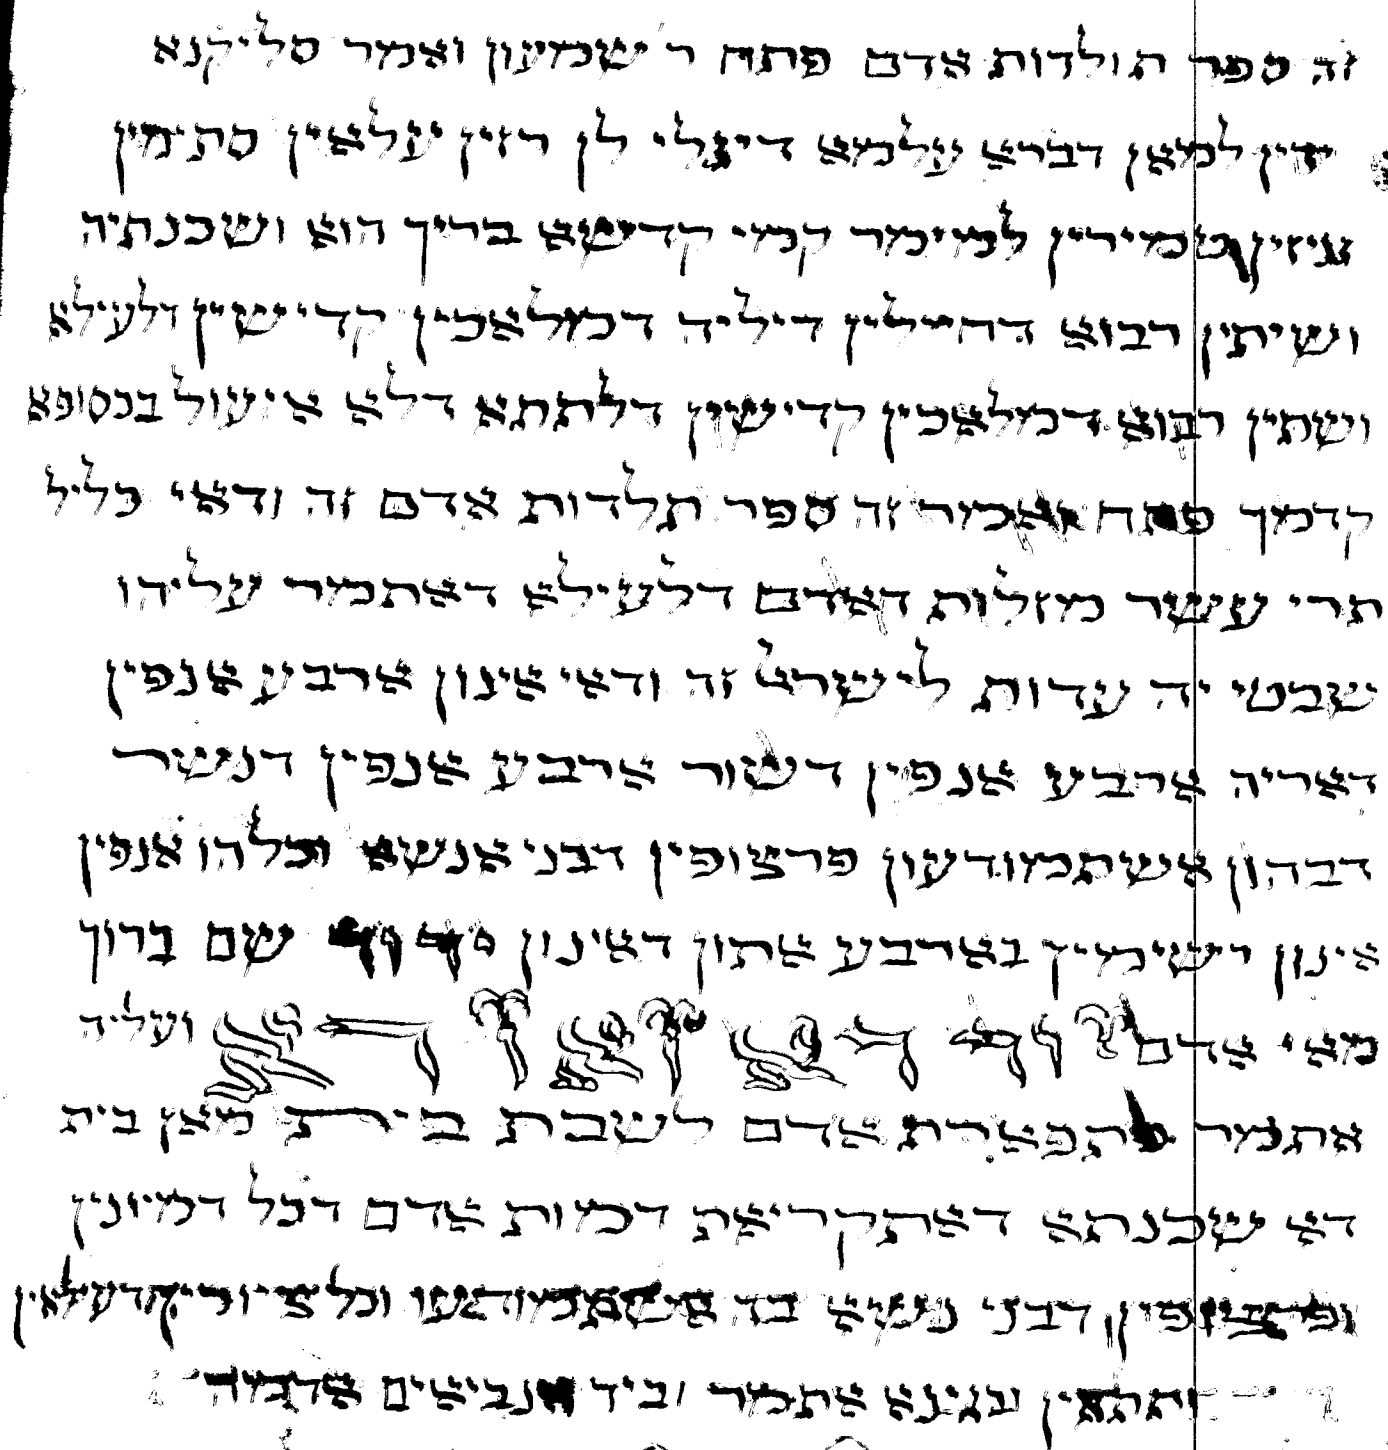 זה ספר תולדות אדם פתח ר' שמעון ואמר סליקנא
ידין למאן דברא עלמא דיגלי לן רזין עלאין סתימין
גניזין טמירין למימר קמי קדישא בריך הוא ושכנתיה
ושיתין רבוא דחיילין דיליה דמלאכין קדישין דלעילא
ושתין רבוא דמלאכין קדישין דלתתא דלא איעול בכסופא
קדמך פתח ואמר זה ספר תלדות אדם זה ודאי כליל
תרי עשר מזלות דאדם דלעילא דאתמר עליהו
שבטי יה עדות לישראל זה ודאי אינון ארבע אנפין
דאריה ארבע אנפין דשור ארבע אנפין דנשר
דבהון אשתמודעון פרצופין דבני אנשא וכלהו אנפין
אינון רשימין בארבע אתון דאינון שם ברוך
מאי אדם ועליה
אתמר כתפארת אדם לשבת בית מאן בית
דא שכנתא דאתקריאת דמות אדם דכל דמיונין
ופרצופין דבני נשא בה אשתמודעו וכל ציורין דעלאין
ותתאין ובגינא אתמר וביד הנביאים אדמה